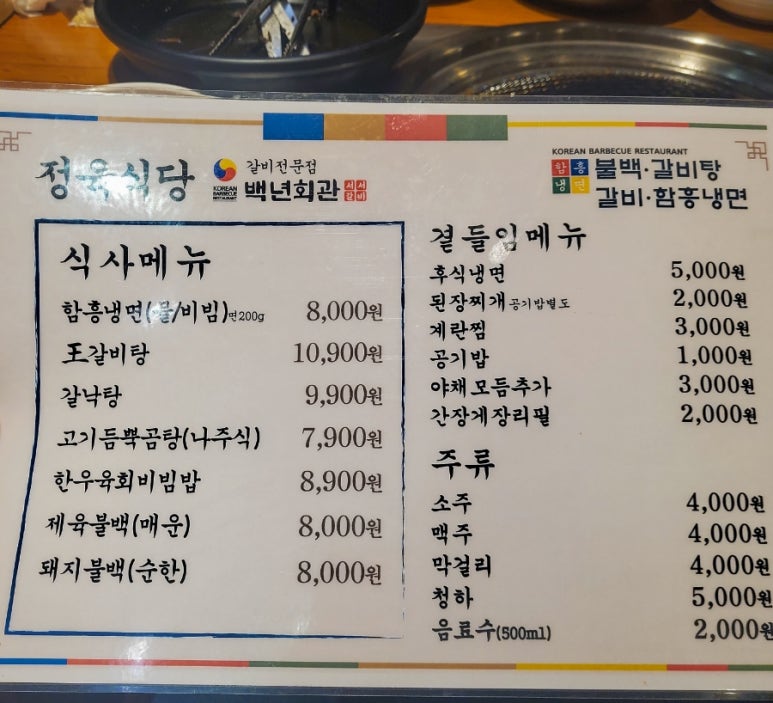 정육식당
KOREAN BARBECUE RESTAURANT
갈비전문점
백년회관
서서갈비
KOREAN BARBECUE RESTAURANT
함흥냉면
불백·갈비탕
갈비·함흥냉면
식사메뉴
함흥냉면(물/비빔)면200g 8,000원
王갈비탕 10,900원
갈낙탕 9,900원
고기듬뿍곰탕(나주식) 7,900원
한우육회비빔밥 8,900원
제육불백(매운) 8,000원
돼지불백(순한) 8,000원
곁들임메뉴
후식냉면 5,000원
된장찌개공기밥별도 2,000원
계란찜 3,000원
공기밥 1,000원
야채모듬추가 3,000원
간장게장리필 2,000원
주류
소주 4,000원
맥주 4,000원
막걸리 4,000원
청하 5,000원
음료수(500ml) 2,000원